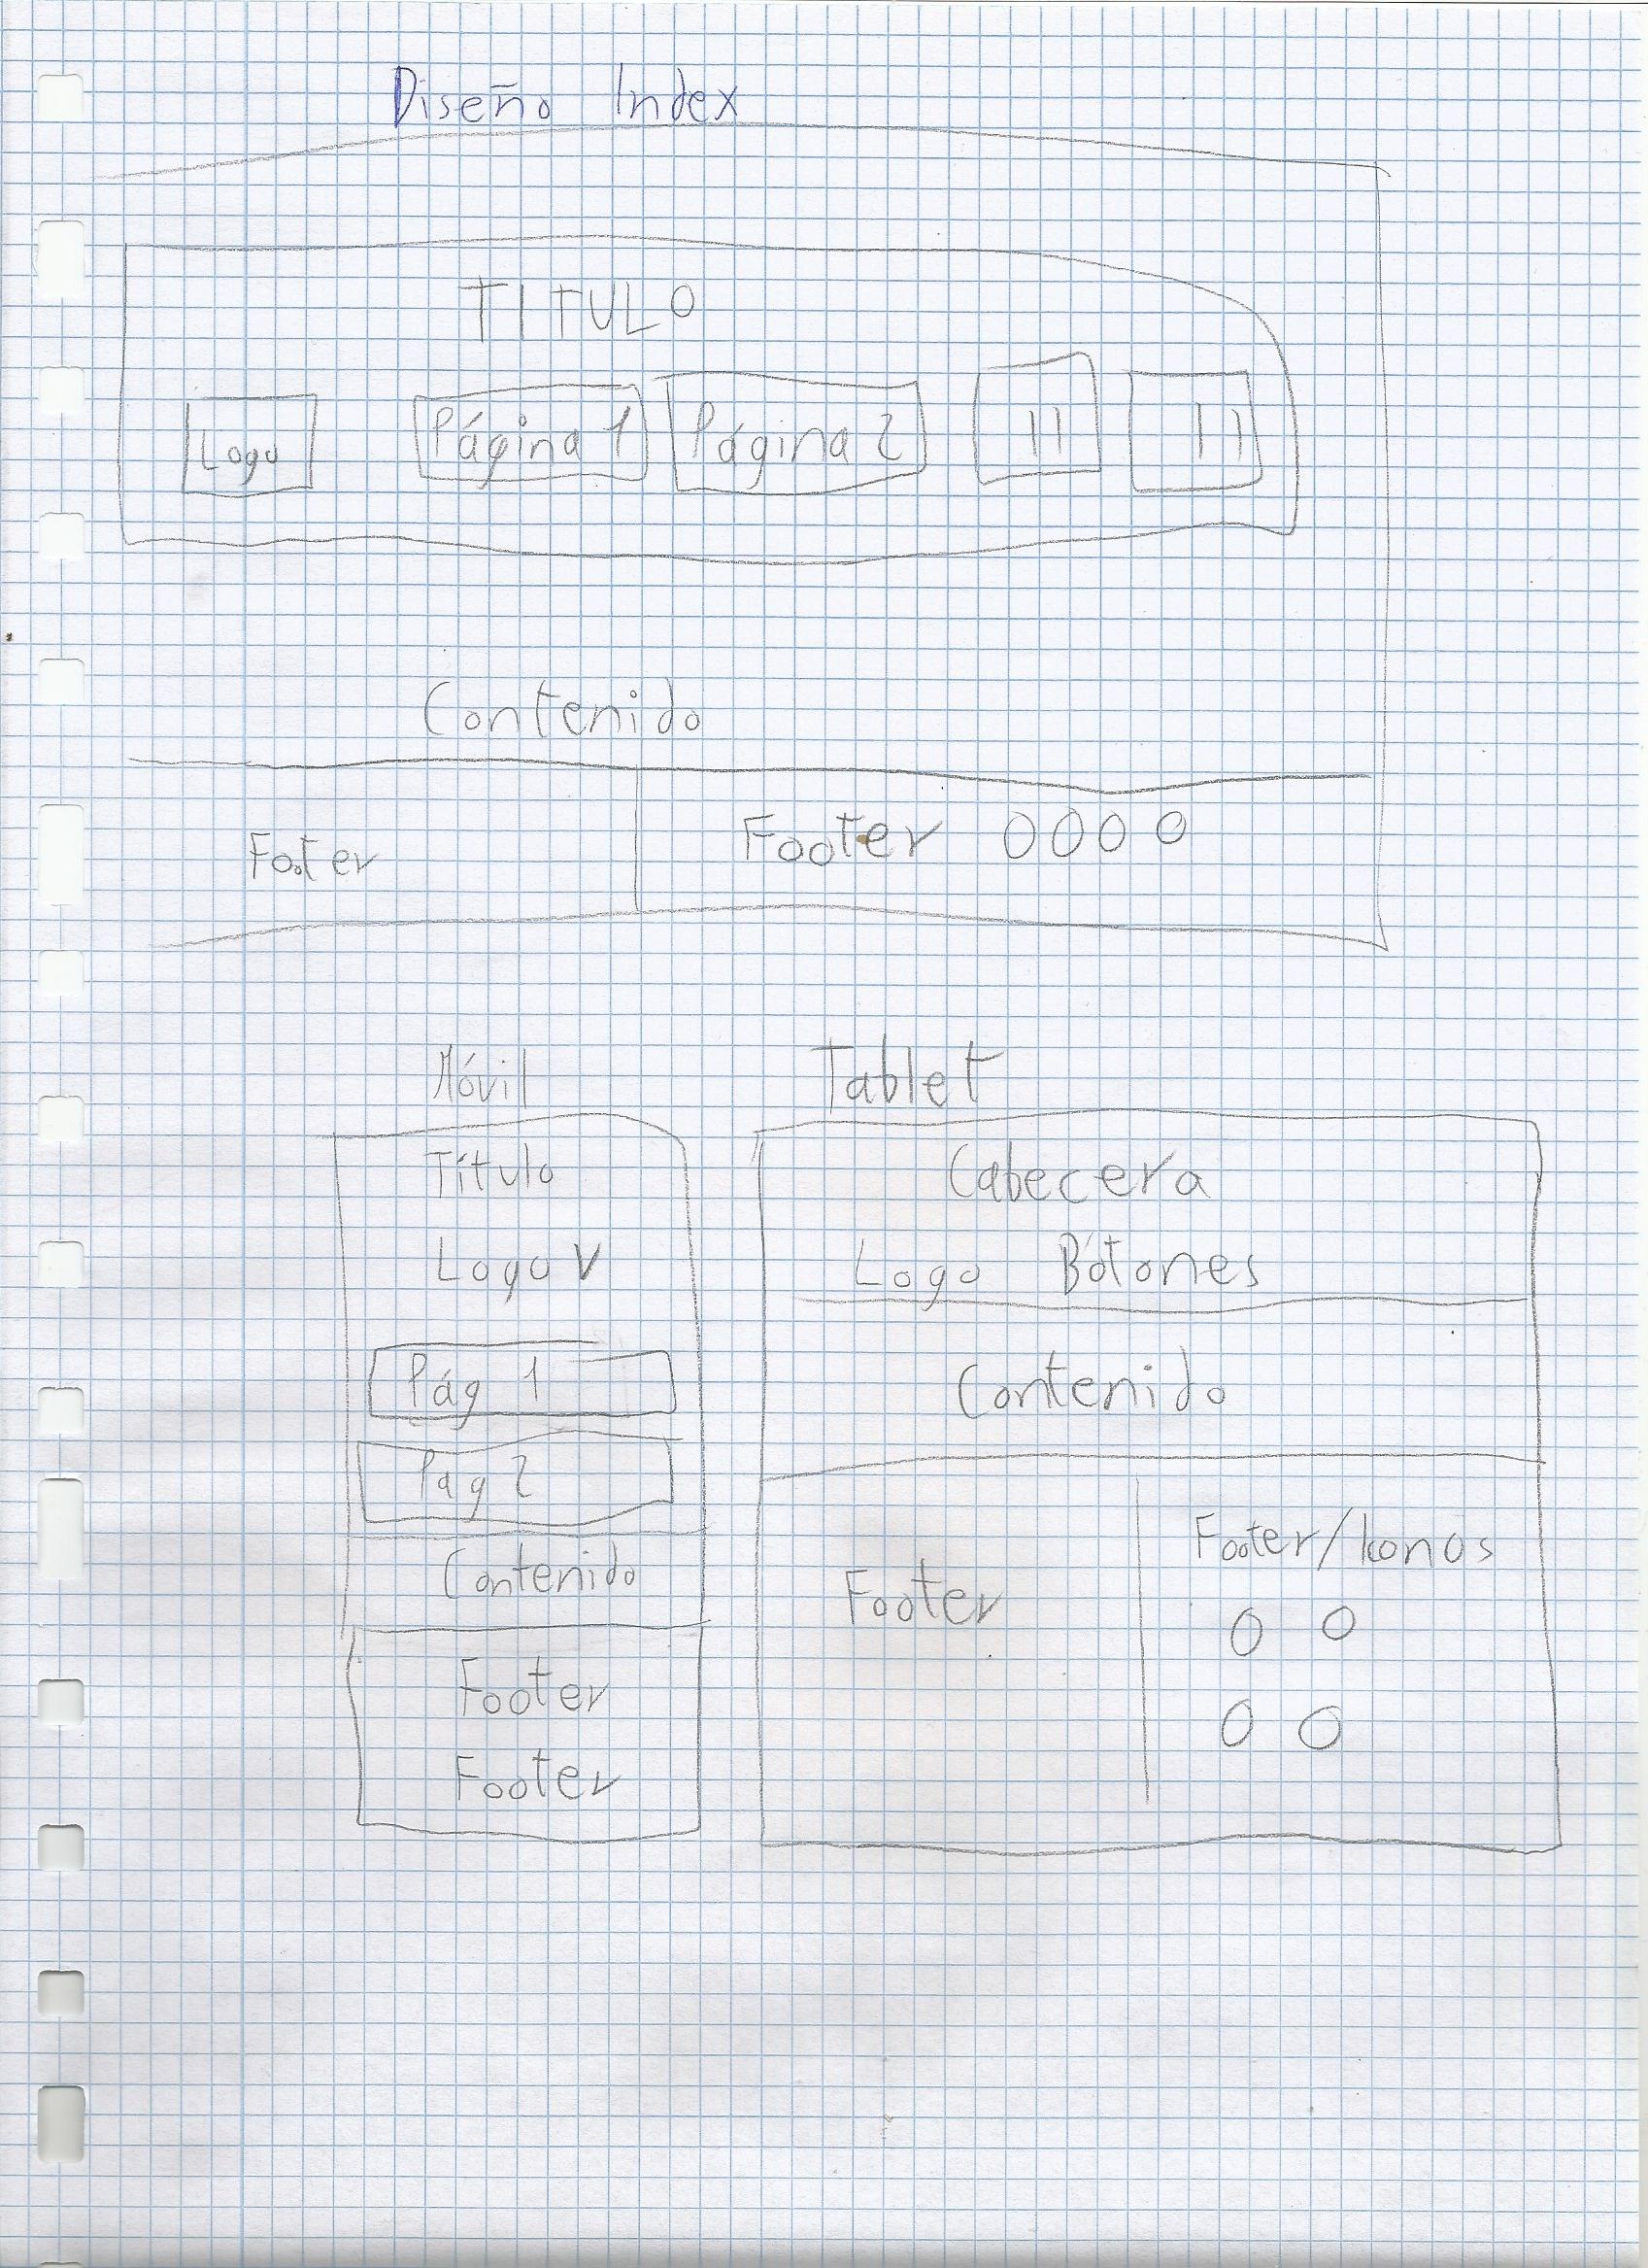 Diseño Index
TITULO
Logo Página 1 Página 2 11 11
Contenido
Footer Footer 0000
Móvil
Título
Logo V
Pág 1
Pag 2
Contenido
Footer
Footer
Tablet
Cabecera
Logo Botones
Contenido
Footer
Footer/Iconos
0 0
0 0